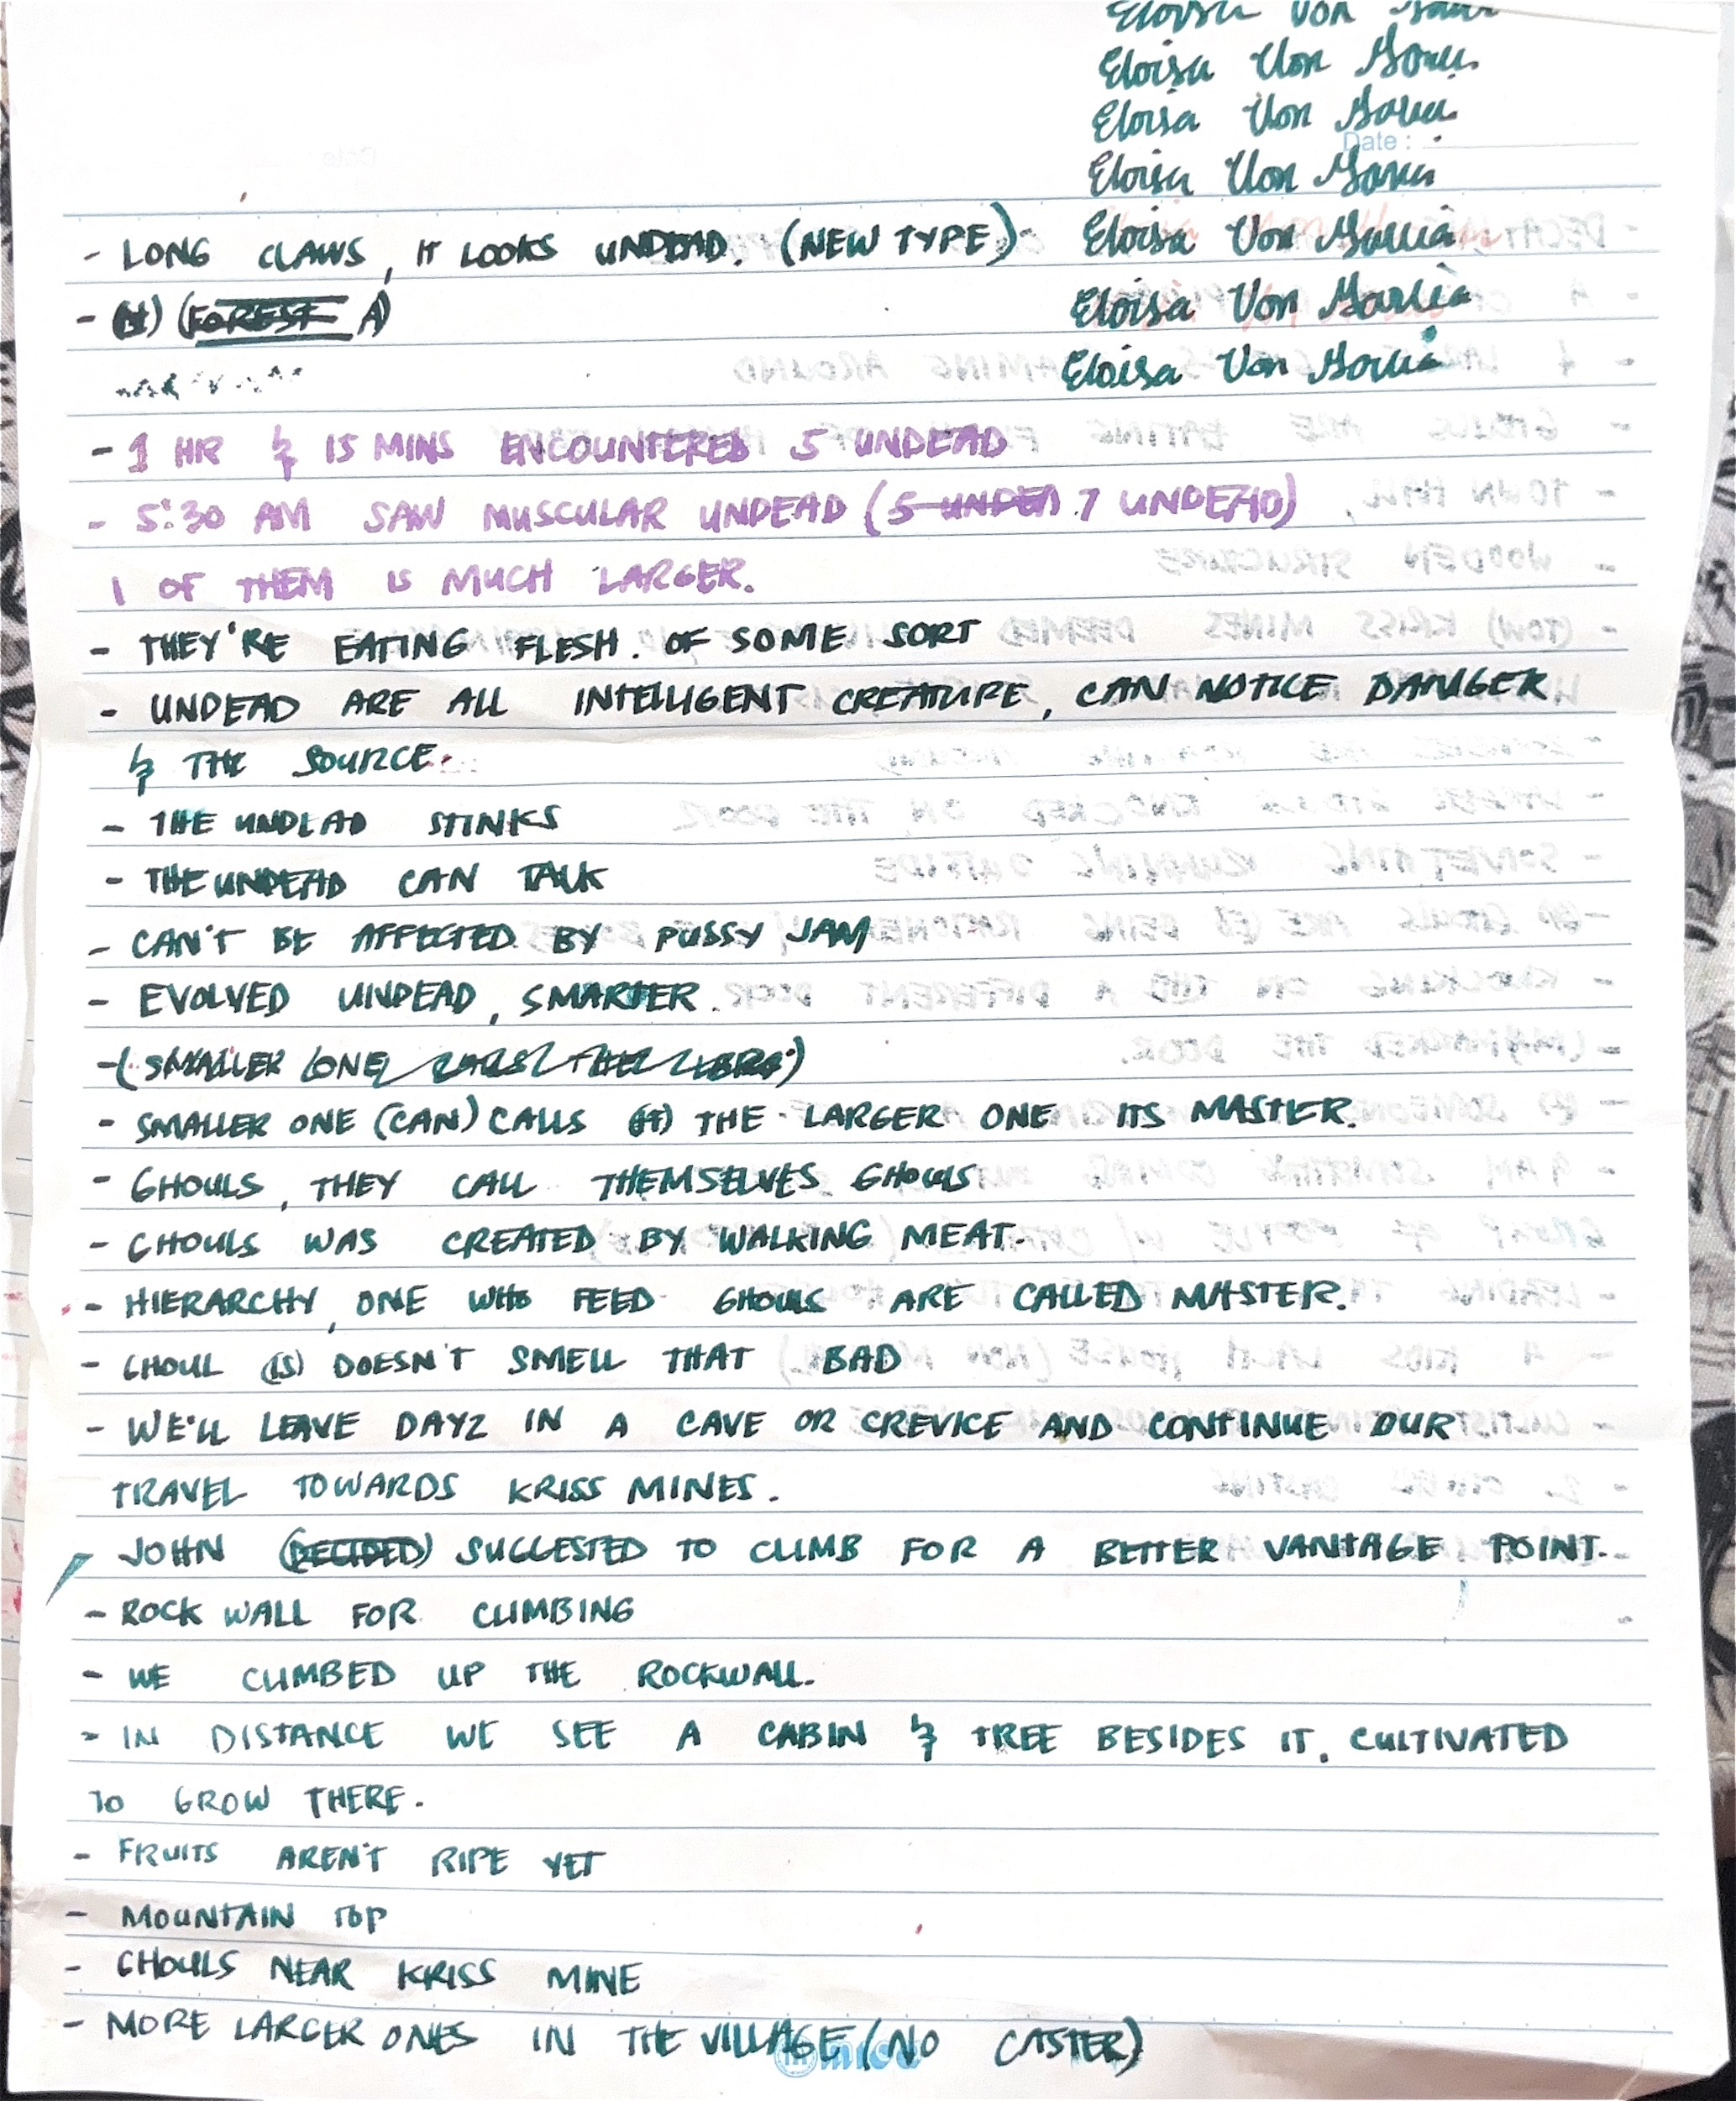 Eloisa Von
Eloisa Von
Eloisa Von
Date :
Eloisa Von
- LONG CLAWS, IT LOOKS UNDEAD. (NEW TYPE)
Eloisa Von
- (FOREST A)
Eloisa Von
Eloisa Von
- 1 HR & 15 MINS ENCOUNTERED 5 UNDEAD
- 5:30 AM SAW MUSCULAR UNDEAD (5 UNDED 7 UNDEAD)
1 OF THEM IS MUCH LARGER.
- THEY'RE EATING FLESH. OF SOME SORT
- UNDEAD ARE ALL INTELLIGENT CREATURE, CAN NOTICE DANGER
& THE SOURCE.
- THE UNDEAD STINKS
- THE UNDEAD CAN TALK
- CAN'T BE AFFECTED BY PUSSY JAM
- EVOLVED UNDEAD, SMARTER.
- (SMALLER ONE
- SMALLER ONE (CAN) CALLS THE LARGER ONE ITS MASTER.
- GHOULS, THEY CALL THEMSELVES GHOULS
- GHOULS WAS CREATED BY WALKING MEAT.
- HIERARCHY, ONE WHO FEED GHOULS ARE CALLED MASTER.
- GHOUL (IS) DOESN'T SMELL THAT BAD
- WE'LL LEAVE DAYZ IN A CAVE OR CREVICE AND CONTINUE OUR
TRAVEL TOWARDS KRISS MINES.
- JOHN (DECIDED) SUGGESTED TO CLIMB FOR A BETTER VANTAGE POINT.
- ROCK WALL FOR CLIMBING
- WE CLIMBED UP THE ROCKWALL.
- IN DISTANCE WE SEE A CABIN & TREE BESIDES IT, CULTIVATED
TO GROW THERE.
- FRUITS AREN'T RIPE YET
- MOUNTAIN TOP
- GHOULS NEAR KRISS MINE
- MORE LARGER ONES IN THE VILLAGE (NO CASTER)